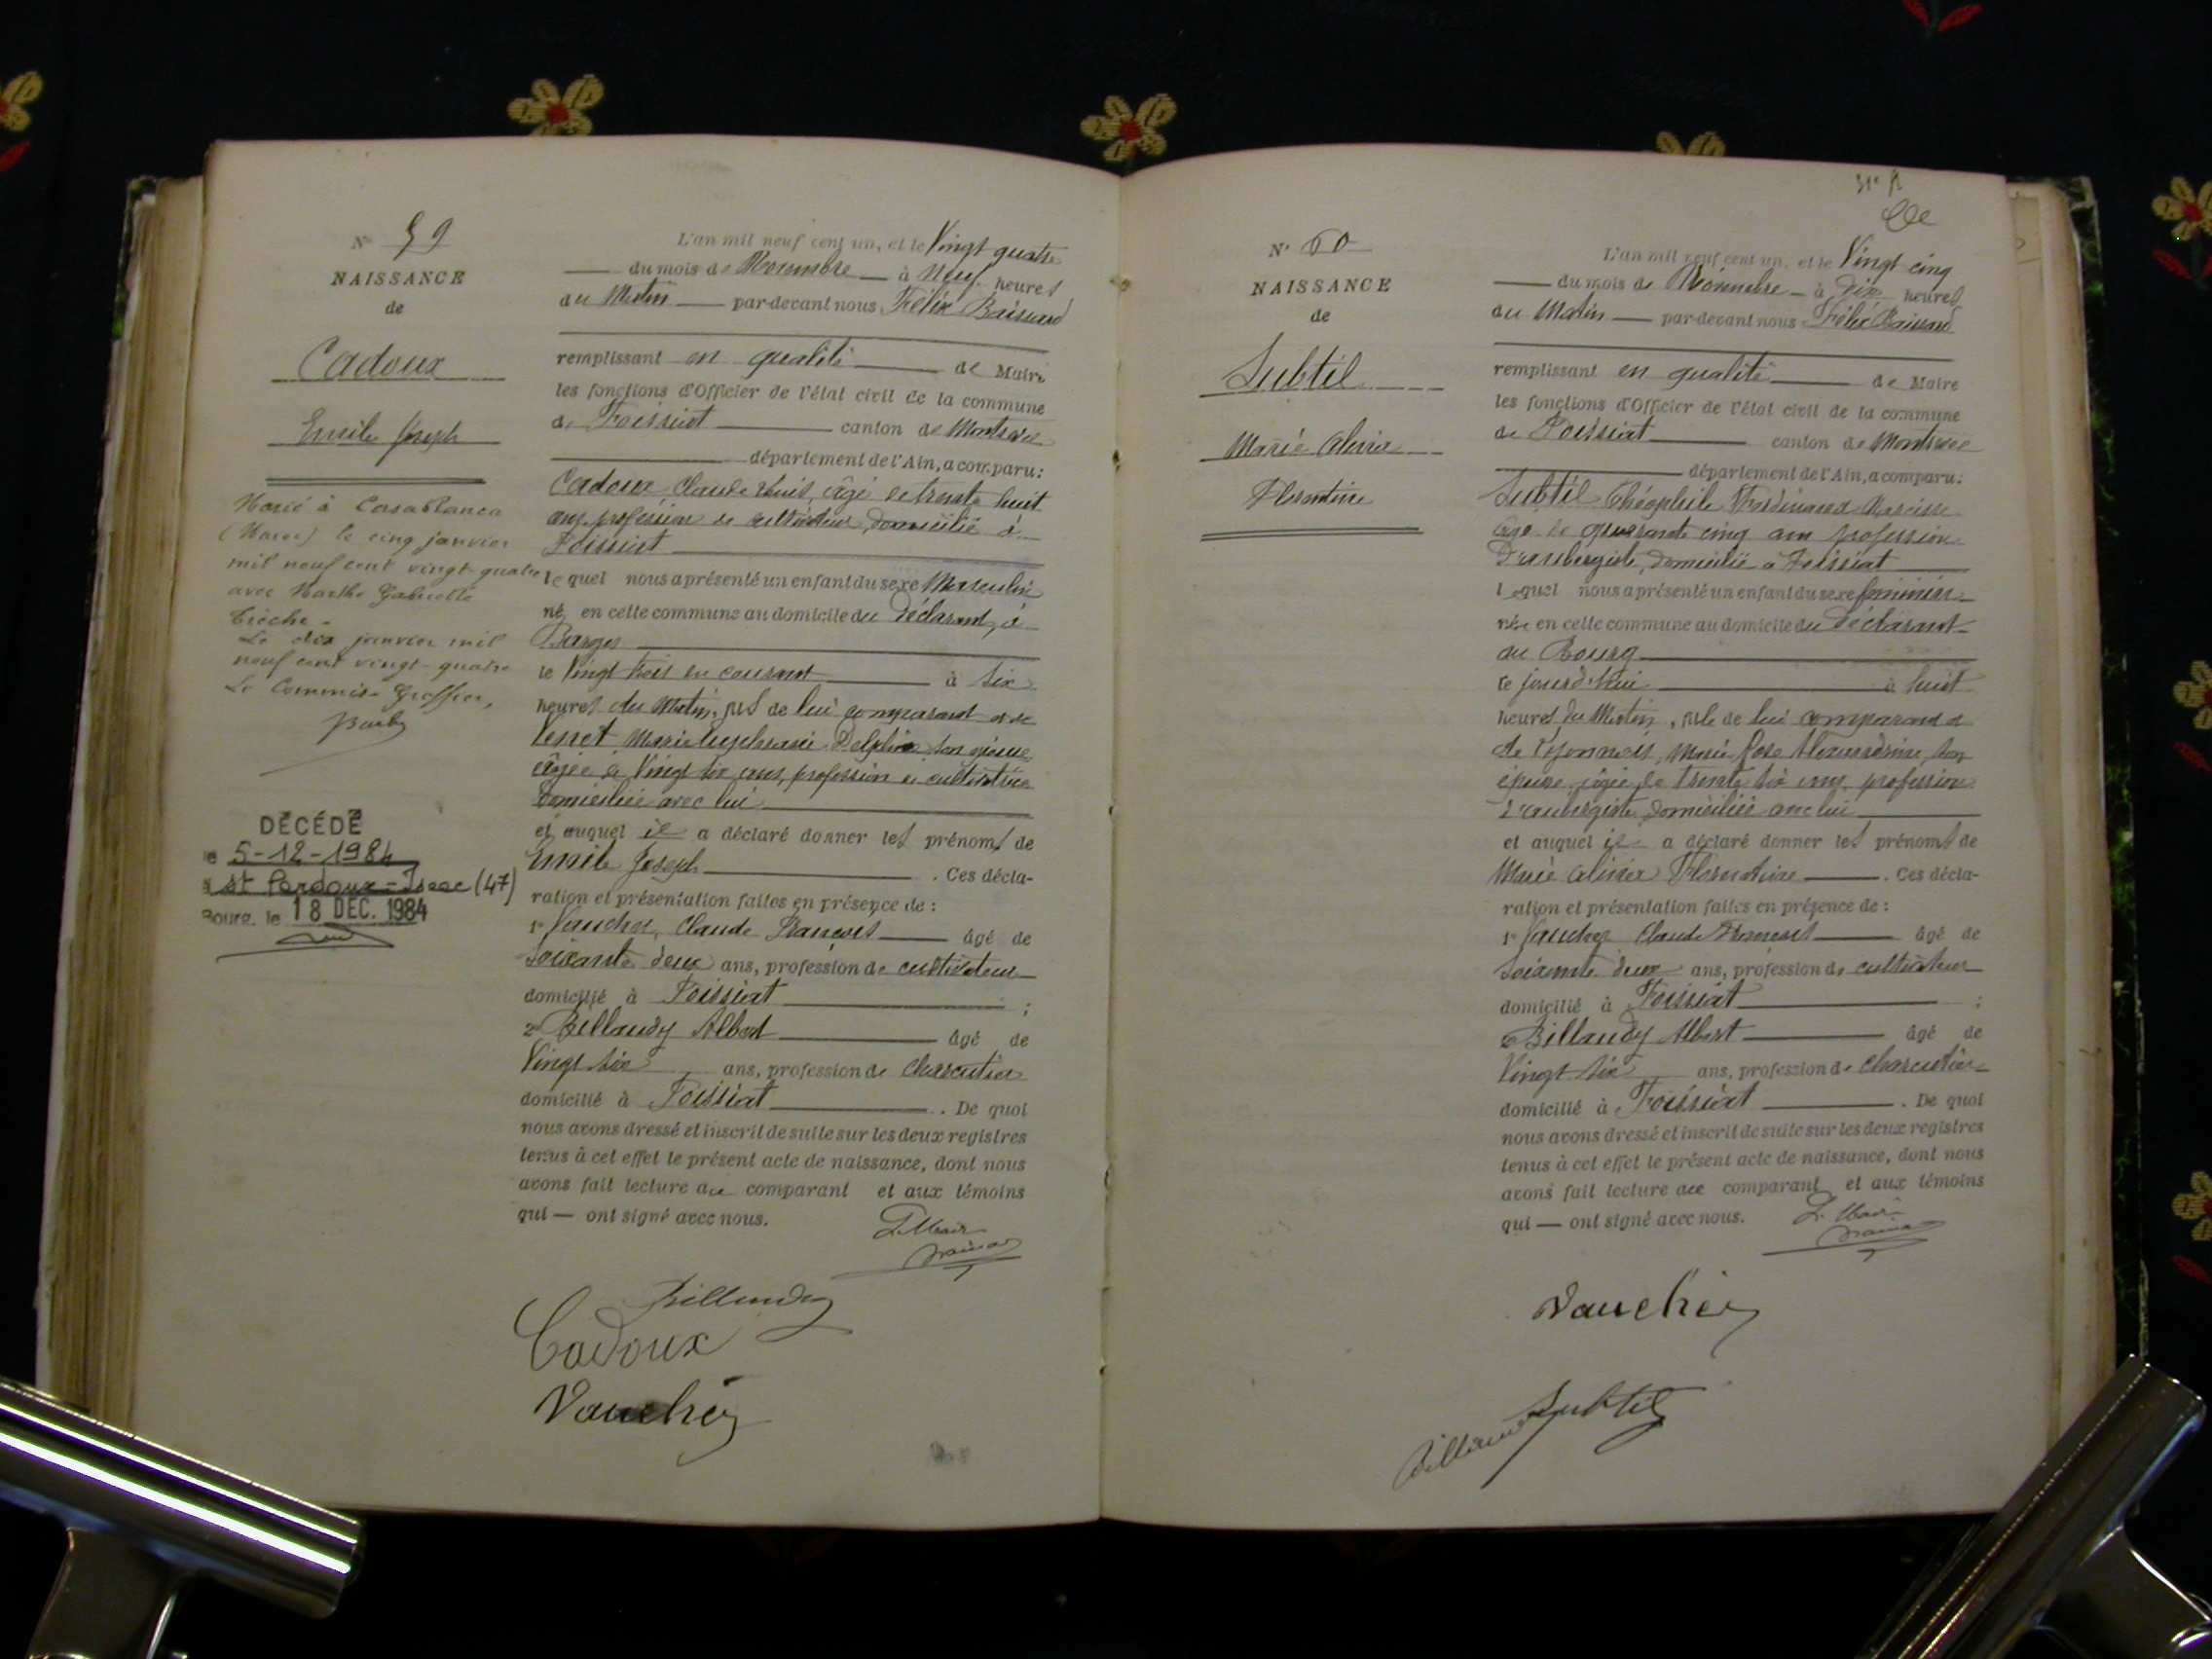 N° 59
NAISSANCE
de
Cadoux
Emile Joseph
Marié à Casablanca
(Maroc) le cinq janvier
mil neuf cent vingt-quatre
avec Marthe Gabrielle
Le dix janvier mil
neuf cent vingt-quatre
Le Commis-Greffier,
DÉCÉDÉ
le 5-12-1984
à St Pardoux-Isaac (47)
Bourg, le 18 DEC. 1984
L'an mil neuf cent un, et le Vingt quatre
du mois de Novembre à Neuf heures
du Matin par-devant nous Félix
remplissant en qualité de Maire
les fonctions d'Officier de l'état civil de la commune
de Foissiat canton de Montrevel
département de l'Ain, a comparu:
Cadoux Claude Louis, âgé de trente huit
ans, profession de cultivateur, domicilié à
Foissiat
lequel nous a présenté un enfant du sexe Masculin
né en cette commune au domicile du Déclarant, à
le Vingt trois du courant à six
heures du Matin, fils de lui comparant et de
Marie Euphrasie Delphine son épouse,
âgée de Vingt six ans, profession de cultivatrice
domiciliée avec lui
et auquel il a déclaré donner les prénoms de
Emile Joseph . Ces décla-
ration et présentation faites en présence de :
1° Vaucher, Claude François âgé de
Soixante deux ans, profession de cultivateur
domicilié à Foissiat ;
2° Billaudy Albert âgé de
Vingt six ans, profession de Charcutier
domicilié à Foissiat . De quoi
nous avons dressé et inscrit de suite sur les deux registres
tenus à cet effet le présent acte de naissance, dont nous
avons fait lecture au comparant et aux témoins
qui — ont signé avec nous.
Le Maire
Billaudy
Cadoux
Vaucher
N° 60
NAISSANCE
de
Subtil
Marie
Florentine
L'an mil neuf cent un, et le Vingt cinq
du mois de Novembre à Dix heures
du Matin par-devant nous Félix
remplissant en qualité de Maire
les fonctions d'Officier de l'état civil de la commune
de Foissiat canton de Montrevel
département de l'Ain, a comparu:
Subtil Théophile Ferdinand Narcisse
âgé de quarante cinq ans profession
D'aubergiste, domicilié à Foissiat
lequel nous a présenté un enfant du sexe féminin
née en cette commune au domicile du Déclarant
au Bourg
ce jourd'hui à huit
heures du Matin, fille de lui comparant et
de Marie Rose Alexandrine son
épouse, âgée de trente six ans, profession
d'aubergiste, domiciliée avec lui
et auquel il a déclaré donner les prénoms de
Marie Florentine . Ces décla-
ration et présentation faites en présence de :
1° Vaucher Claude François âgé de
Soixante deux ans, profession de cultivateur
domicilié à Foissiat ;
2° Billaudy Albert âgé de
Vingt six ans, profession de Charcutier
domicilié à Foissiat . De quoi
nous avons dressé et inscrit de suite sur les deux registres
tenus à cet effet le présent acte de naissance, dont nous
avons fait lecture au comparant et aux témoins
qui — ont signé avec nous.
Le Maire
Vaucher
Subtil